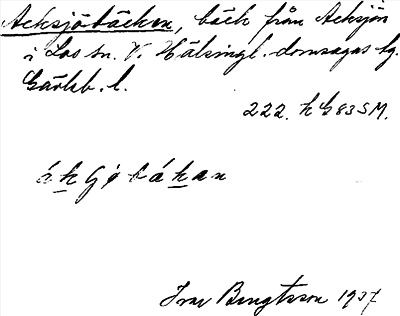 Acksjöbäcken, bäck från Acksjön
i Los sn. V. Hälsingl. domsagas tg.
Gävleb. l.
222. h G 83 SM.
Ivar Bengtsson 1937